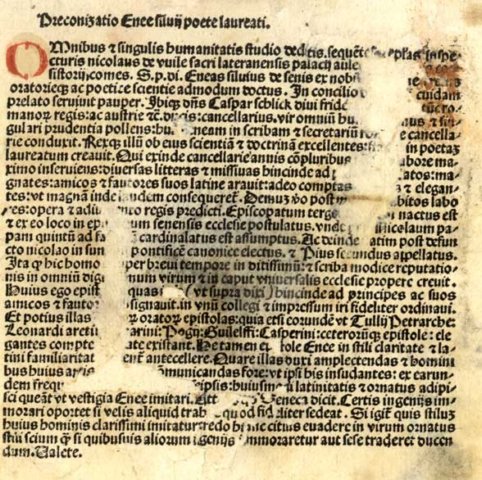 Preconizatio Enee siluij poete laureati.
OMnibus & singulis humanitatis studio deditis. sequẽtes ep̃las inspe
cturis nicolaus de wile sacri lateranensis palacij aule
sistorij comes. S.p.di. Eneas siluius de senis ex nobi
oratorieq3 ac poetice scientie admodum doctus. In concilio cuidam
prelato seruiuit pauper. Ibiq3 dñs Caspar schlick diui fride
manor̃ regis: ac austrie &. ducis: cancellarius. vir omniũ hu
gulari prudentia pollens: neam in scribam & secretariũ cancella
rie conduxit. Rexq3 illũ ob eius scientiã & doctrinã excellentes: in poetam
laureatum creauit. Qui exinde cancellarie annis cõpluribus labore ma
ximo inseruiens: diuersas litteras & missiuas hincinde ad
gnates: amicos & fautores suos latine arauit: adeo comptas & elegan
tes: vt magnã inde laudem consequeret̃. Demuʒ vo post labo
res: opera & adiu to regis predicti. Episcopatum terge nactus est
& ex eo loco in ep um senensis ecclesie postulatus. vnde icolaum pa
pam quintũ ad fa cardinalatus est assumptus. Ac deinde atim post defun
cto nicolao in sun pontificẽ canonice electus. & Pius secundus appellatus.
Ita q3 hic homo per breui tempore in ditissimũ: & scriba modice reputatio
nis in omniũ dign mum virum & in caput vniuersalis ecclesie propere creuit.
Huius ego epist quas vt supra dixi hincinde ad principes ac suos
amicos & fautor signauit. in vnũ collegi & impressum iri fideliter ordinaui.
Et potius illas & orator̃ epistolas: qua etsi eorundẽ vt Tullij Petrarche:
Leonardi aretii arini: Pogij: Guilelfi: Casperini: ceterorũq3 epistole: ele
gantes compte ate existant. Ne tamen & tole Enee in stili claritate & la
tini familiaritat ent antecellere. Quare illas duxi amplectendas & homini
bus huius ap municandas fore: vt ipsi his insudantes: ex earun
dem frequ ipsis: huiusm i latinitatis & ornatus adipi
sci queãt vt vestigia Enee imitari. Seneca dicit. Certis ingenijs im
morari oportet si velis aliquid trah quod fid liter sedeat. Si igit̃ quis stiluʒ
huius hominis clarissimi imitatur: redo hunc citius euadere in virum ornatus
stũ scium q3 si quibusuis aliorum igenijs immoraretur aut sese traderet ducen
dum. Valete.